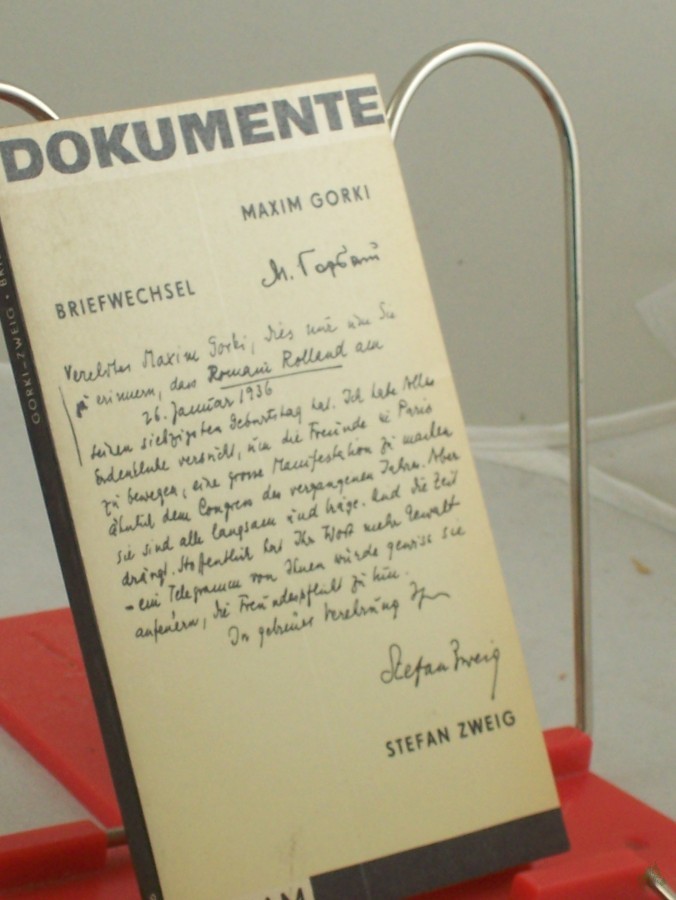 DOKUMENTE
MAXIM GORKI
М. Горький
BRIEFWECHSEL
Verehrter Maxim Gorki, dies nur um Sie
zu erinnern, dass Romain Rolland am
26. Januar 1936
seinen siebzigsten Geburtstag hat. Ich habe alles
Erdenkliche versucht, um die Freunde in Paris
zu bewegen, eine grosse Manifestation zu machen
ähnlich dem Congress des vergangenen Jahres. Aber
sie sind alle langsam und träge. Und die Zeit
drängt. Hoffentlich hat Ihr Wort mehr Gewalt
– ein Telegramm von Ihnen würde gewiss sie
anfeuern, die Freundespflicht zu tun.
In getreuer Verehrung Ihr
Stefan Zweig
STEFAN ZWEIG
GORKI–ZWEIG